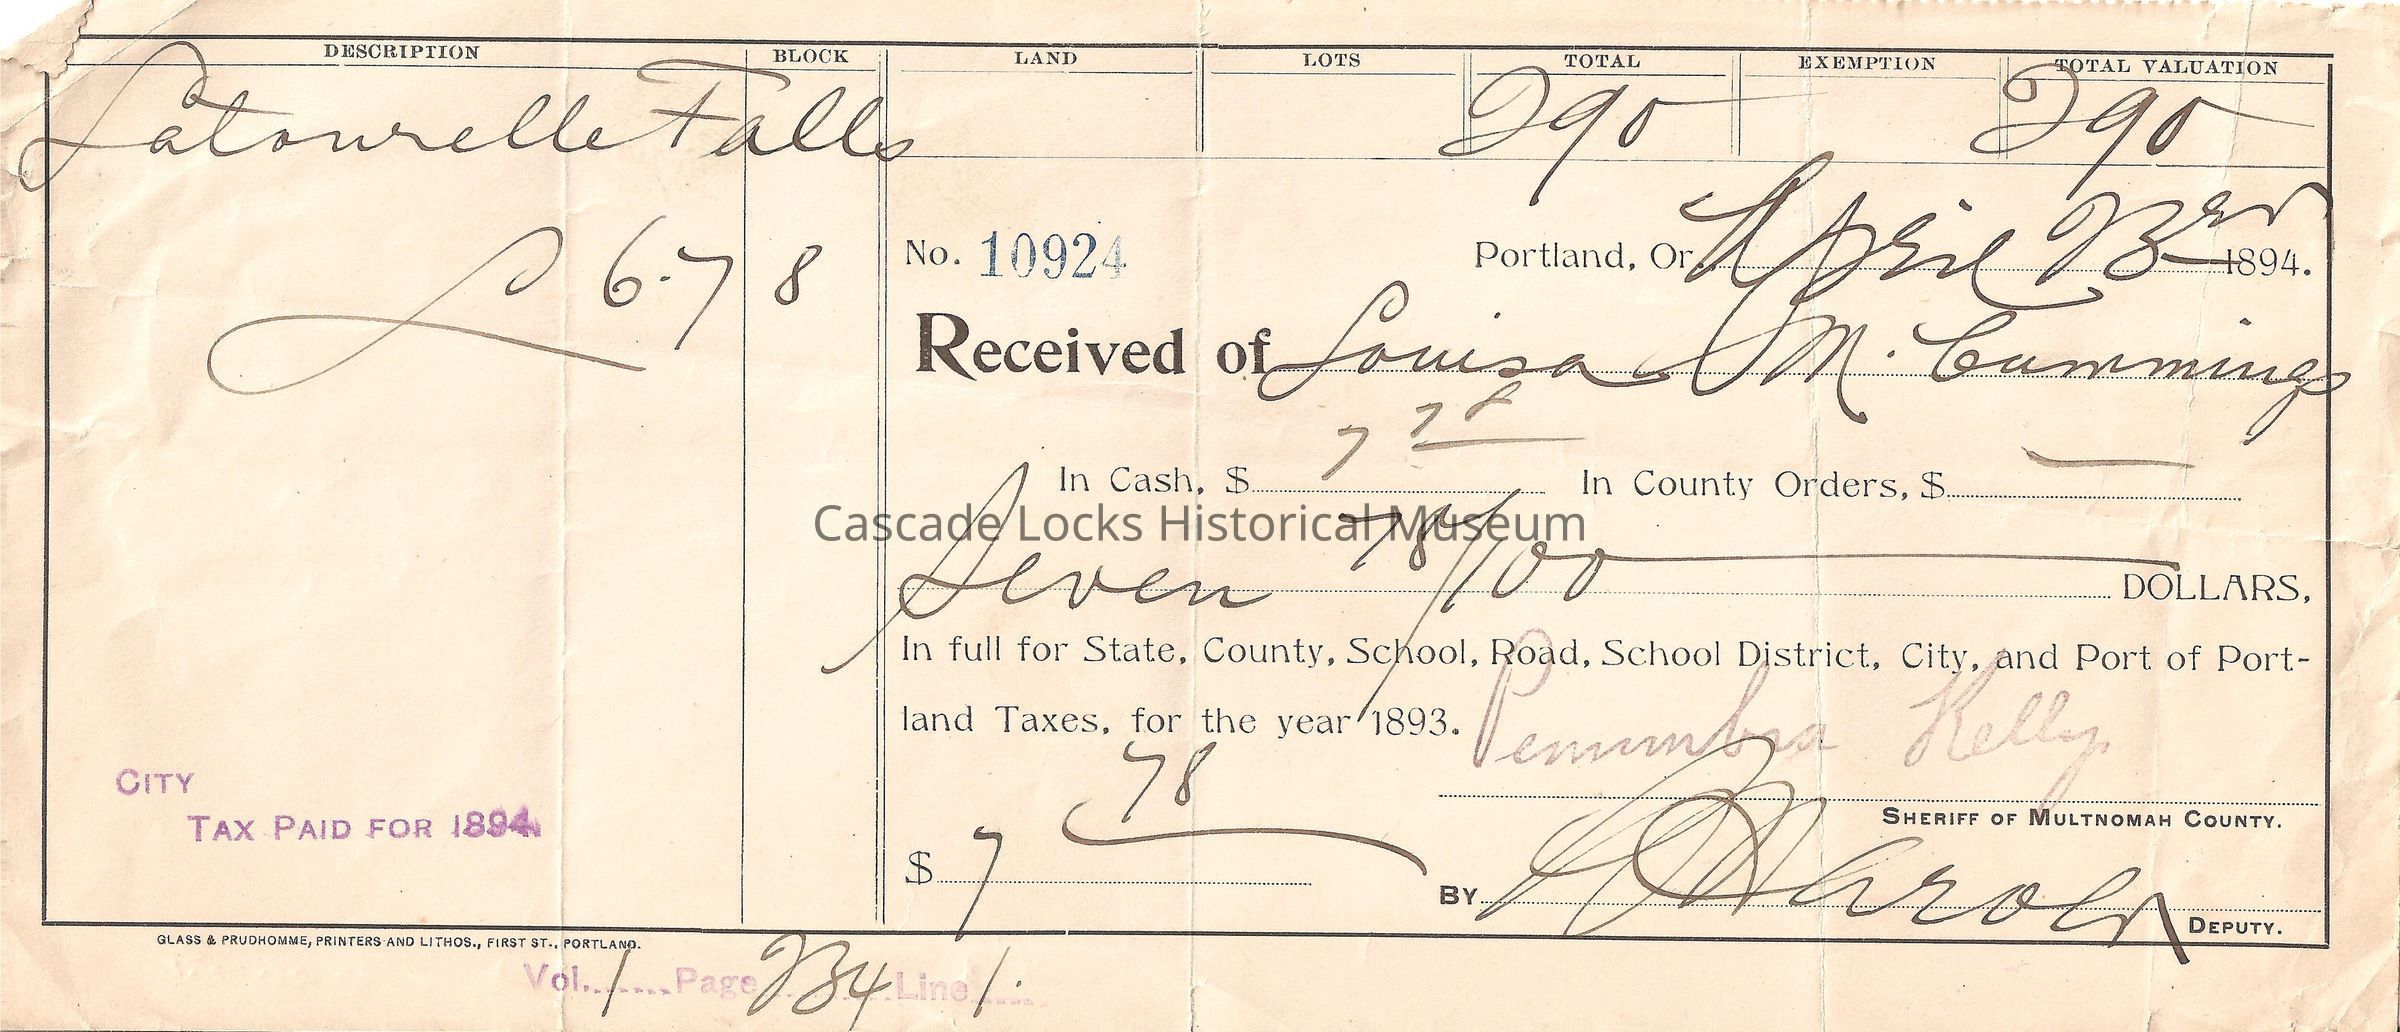 DESCRIPTION BLOCK LAND LOTS TOTAL EXEMPTION TOTAL VALUATION
Latourelle Falls 290 290
L 6-7 8
No. 10924 Portland, Or. April 23rd 1894.
Received of Louisa M. Cummings
In Cash, $ 7 78 In County Orders, $ —
Cascade Locks Historical Museum
Seven 78/100 DOLLARS,
In full for State, County, School, Road, School District, City, and Port of Port-
land Taxes, for the year 1893.
Penumbra Kelly
SHERIFF OF MULTNOMAH COUNTY.
CITY
TAX PAID FOR 1894
$ 7 78
BY DEPUTY.
GLASS & PRUDHOMME, PRINTERS AND LITHOS., FIRST ST., PORTLAND.
Vol. 1 Page 234 Line 1.